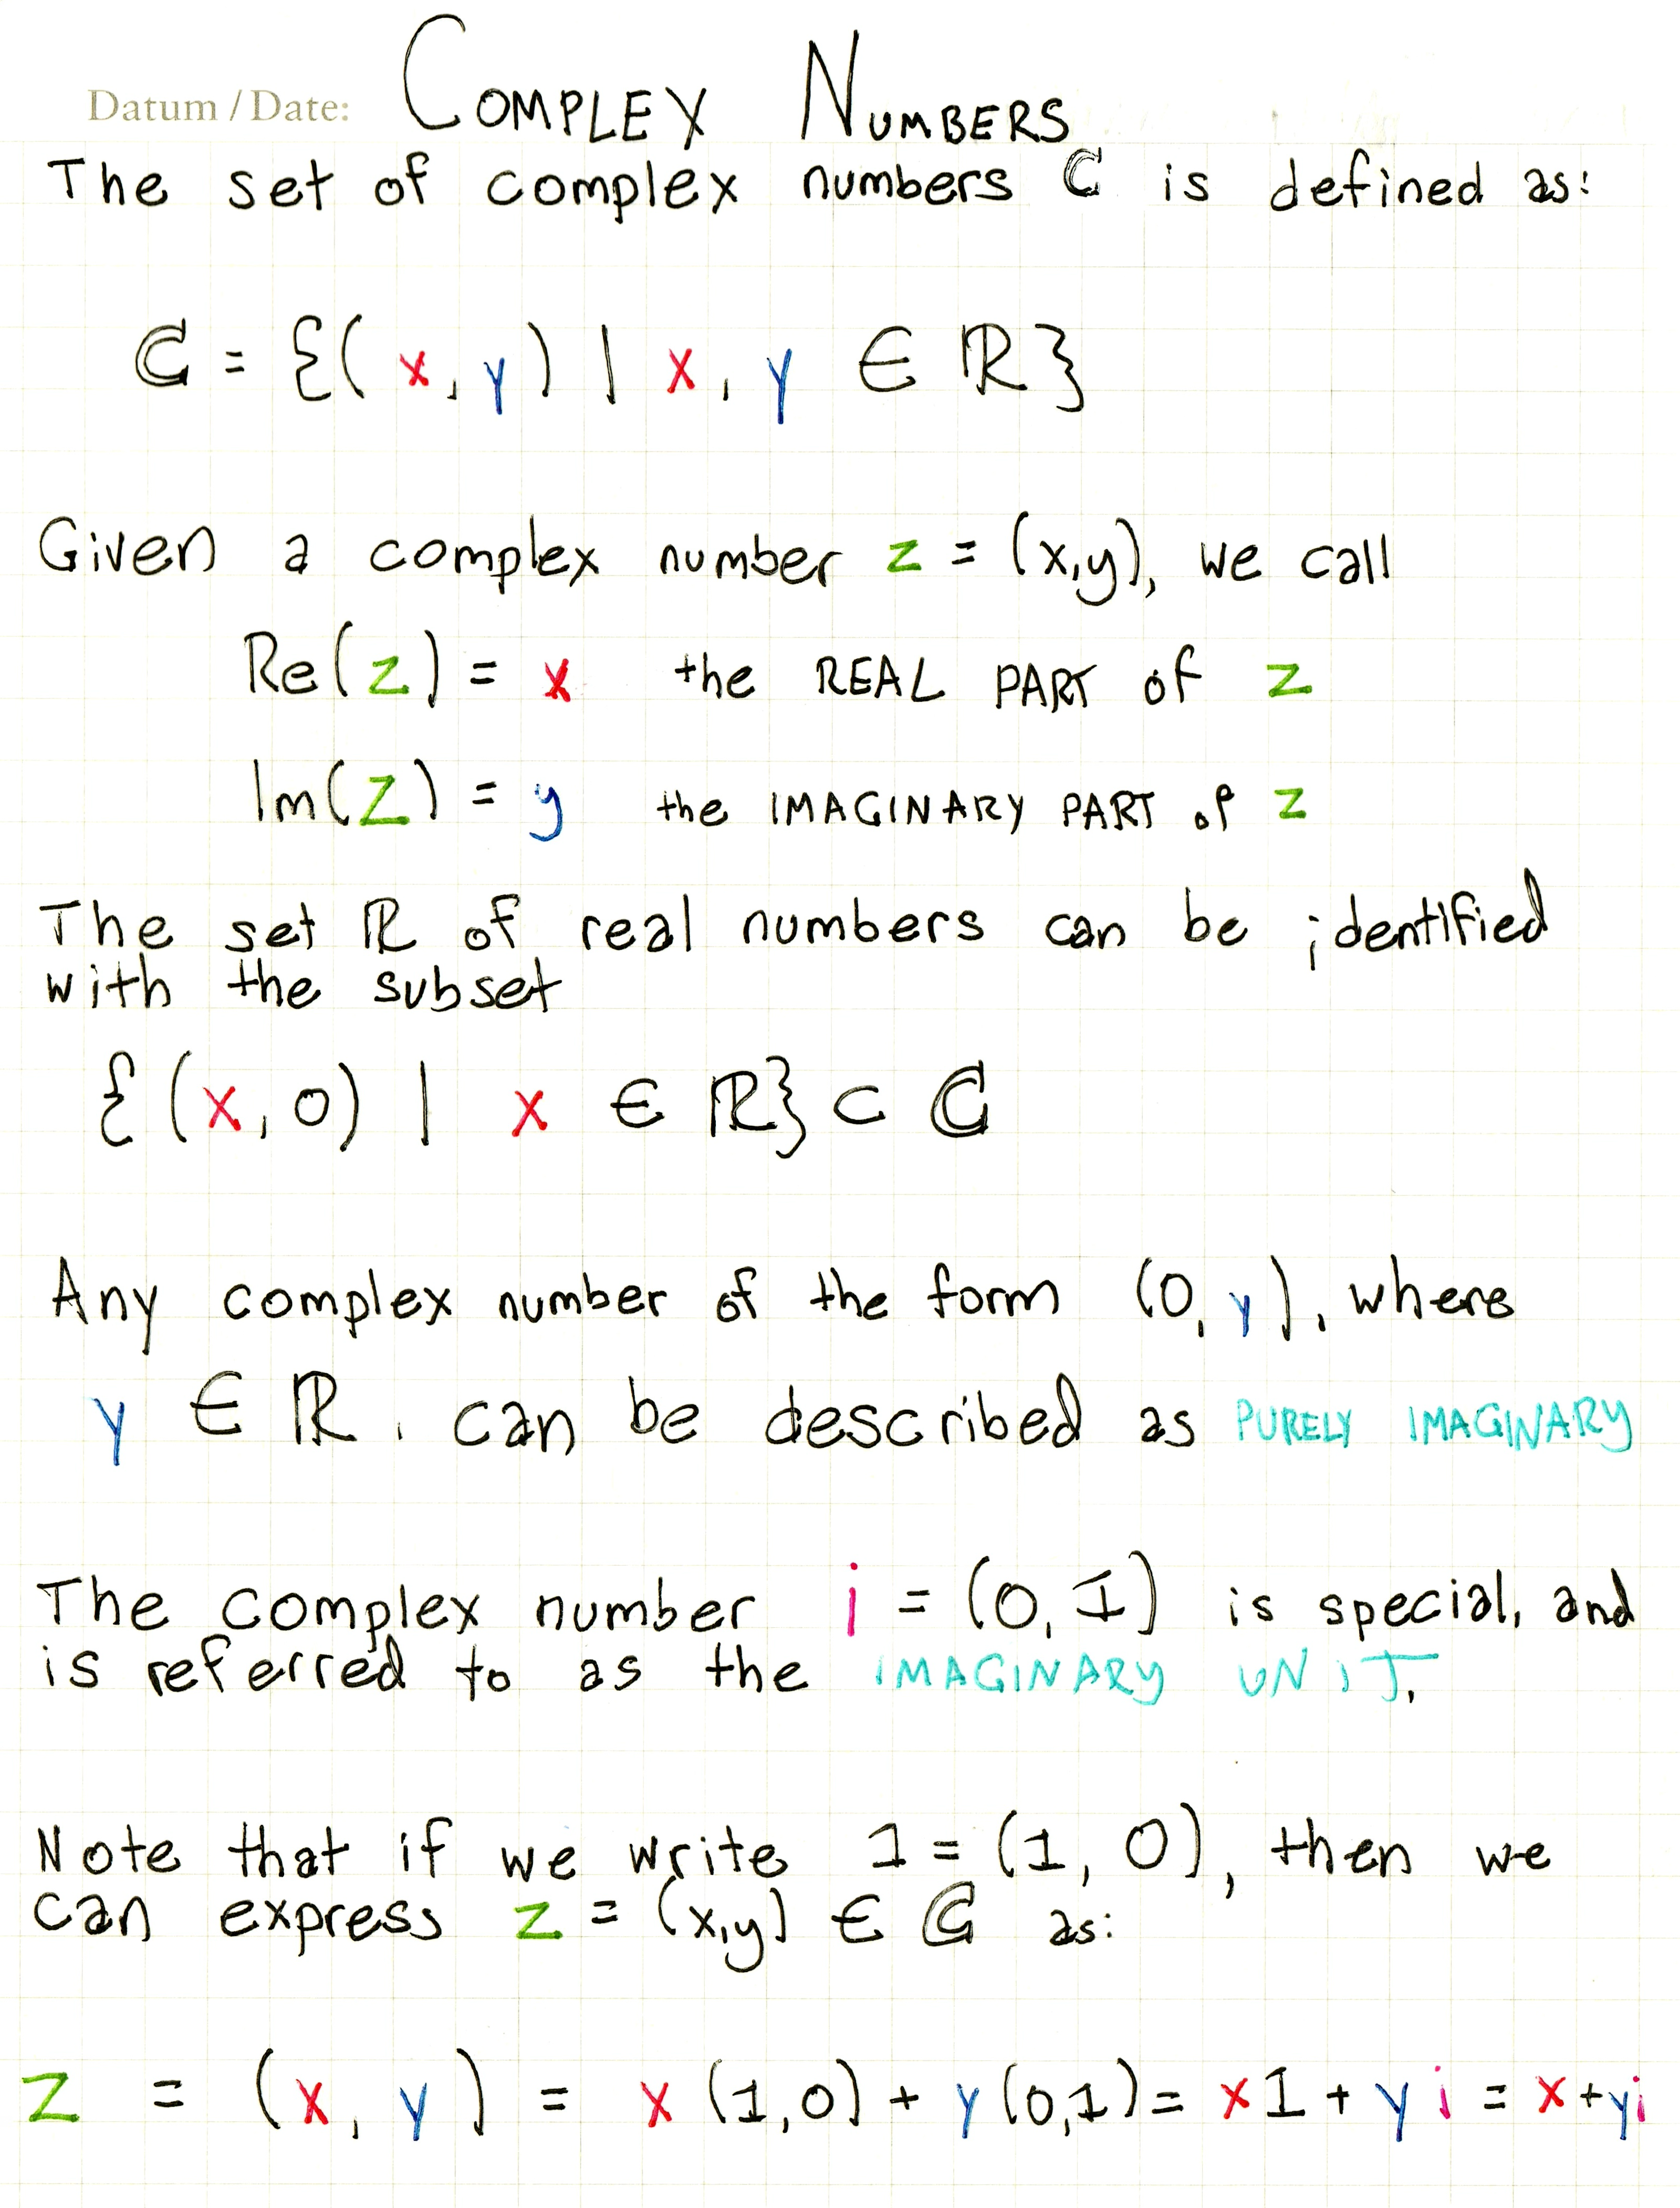 Datum / Date: COMPLEX NUMBERS
The set of complex numbers ℂ is defined as:
ℂ = {(x, y) | x, y ∈ ℝ}
Given a complex number z = (x,y), we call
Re(z) = x the REAL PART of z
Im(z) = y the IMAGINARY PART of z
The set ℝ of real numbers can be identified
with the subset
{(x, 0) | x ∈ ℝ} ⊂ ℂ
Any complex number of the form (0, y), where
y ∈ ℝ, can be described as PURELY IMAGINARY
The complex number i = (0, 1) is special, and
is referred to as the IMAGINARY UNIT.
Note that if we write 1 = (1, 0), then we
can express z = (x,y) ∈ ℂ as:
z = (x, y) = x (1,0) + y (0,1) = x1 + yi = x+yi